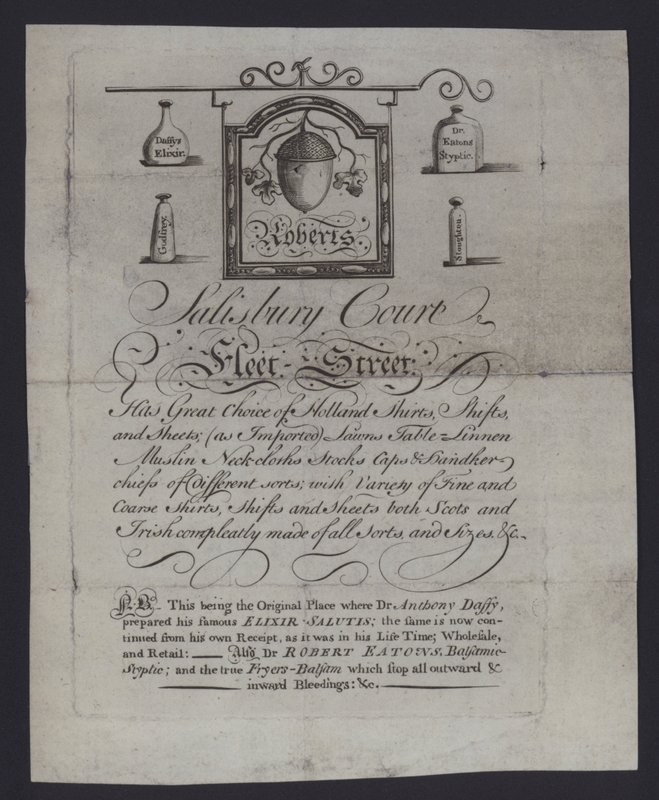 Daffys
Elixir.
Dr.
Eatons
Styptic.
Godfrey.
Stoughton.
Roberts
Salisbury Court
Fleet-Street.
Has Great Choice of Holland Shirts, Shifts,
and Sheets; (as Imported) Lawns Table-Linnen
Muslin Neck-cloths Stocks Caps & Handker-
chiefs of Different sorts; with Variety of Fine and
Coarse Shirts, Shifts and Sheets both Scots and
Irish compleatly made of all Sorts, and Sizes. &c.
N.B. This being the Original Place where Dr. Anthony Daffy,
prepared his famous ELIXIR-SALUTIS; the same is now con-
tinued from his own Receipt, as it was in his Life Time; Wholesale,
and Retail: Also Dr ROBERT EATONS, Balsamic-
Styptic; and the true Fryers-Balsam which stop all outward &
inward Bleedings: &c.